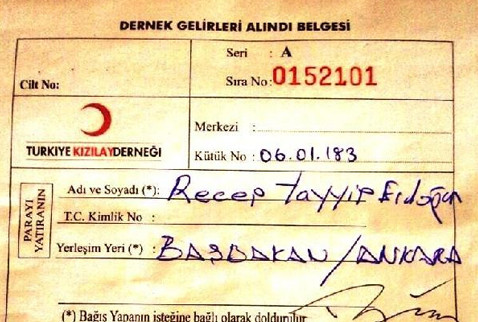 DERNEK GELİRLERİ ALINDI BELGESİ
Seri : A
Cilt No:
Sıra No: 0152101
TÜRKİYE KIZILAY DERNEĞİ
Merkezi :
Kütük No : 06.01.183
PARAYI YATIRANIN
Adı ve Soyadı (*): Recep Tayyip Erdoğan
T.C. Kimlik No :
Yerleşim Yeri (*) : BAŞBAKAN/ANKARA
(*) Bağış Yapanın isteğine bağlı olarak doldurulur